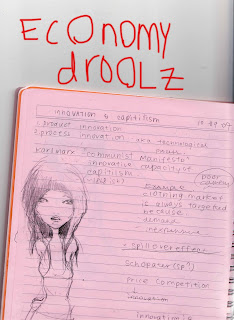 ECONOMY
drOOLZ
innovation & capitilism
1. product innovation
2. process innovation aka technological
Karl Marx "communist manifesto"
innovative capacity of
capitilism
poor
country
example
clothing market
is always targeted
because
demand
- spill over effect
schopater (sp?)
price competition
innovation
innovation is